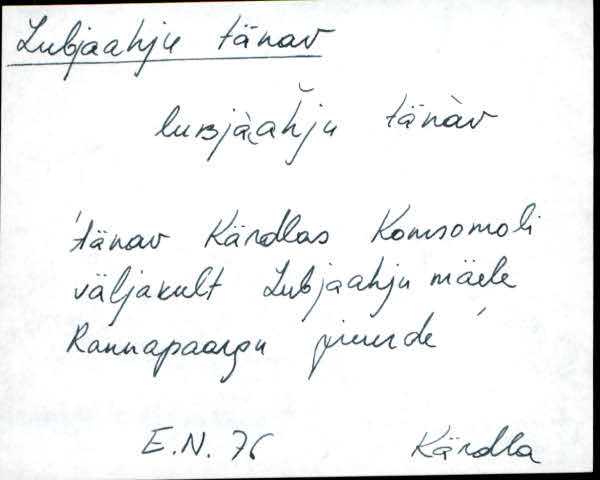 Lubjaahju tänav
luʙjàahju tänàv
'tänav Kärdlas Komsomoli
väljakult Lubjaahju mäele
Rannapaargu juurde'
E.N. 76 Kärdla